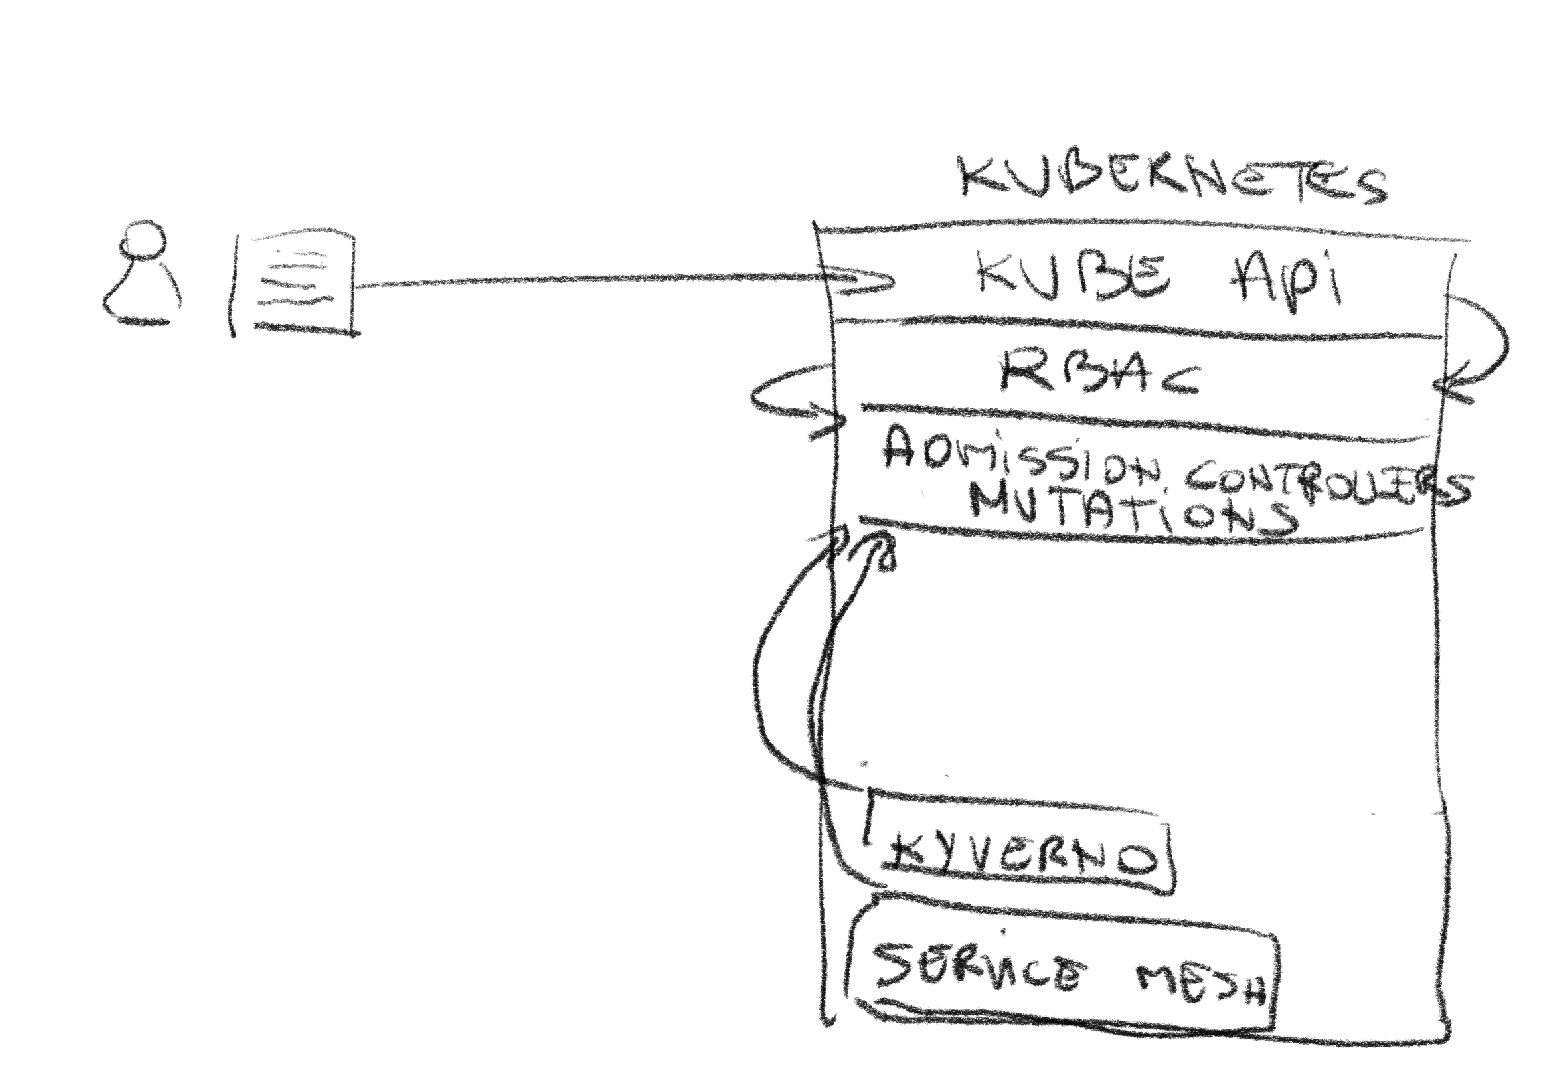 KUBERNETES
KUBE Api
RBAC
ADMISSION CONTROLLERS
MUTATIONS
KYVERNO
SERVICE MESH